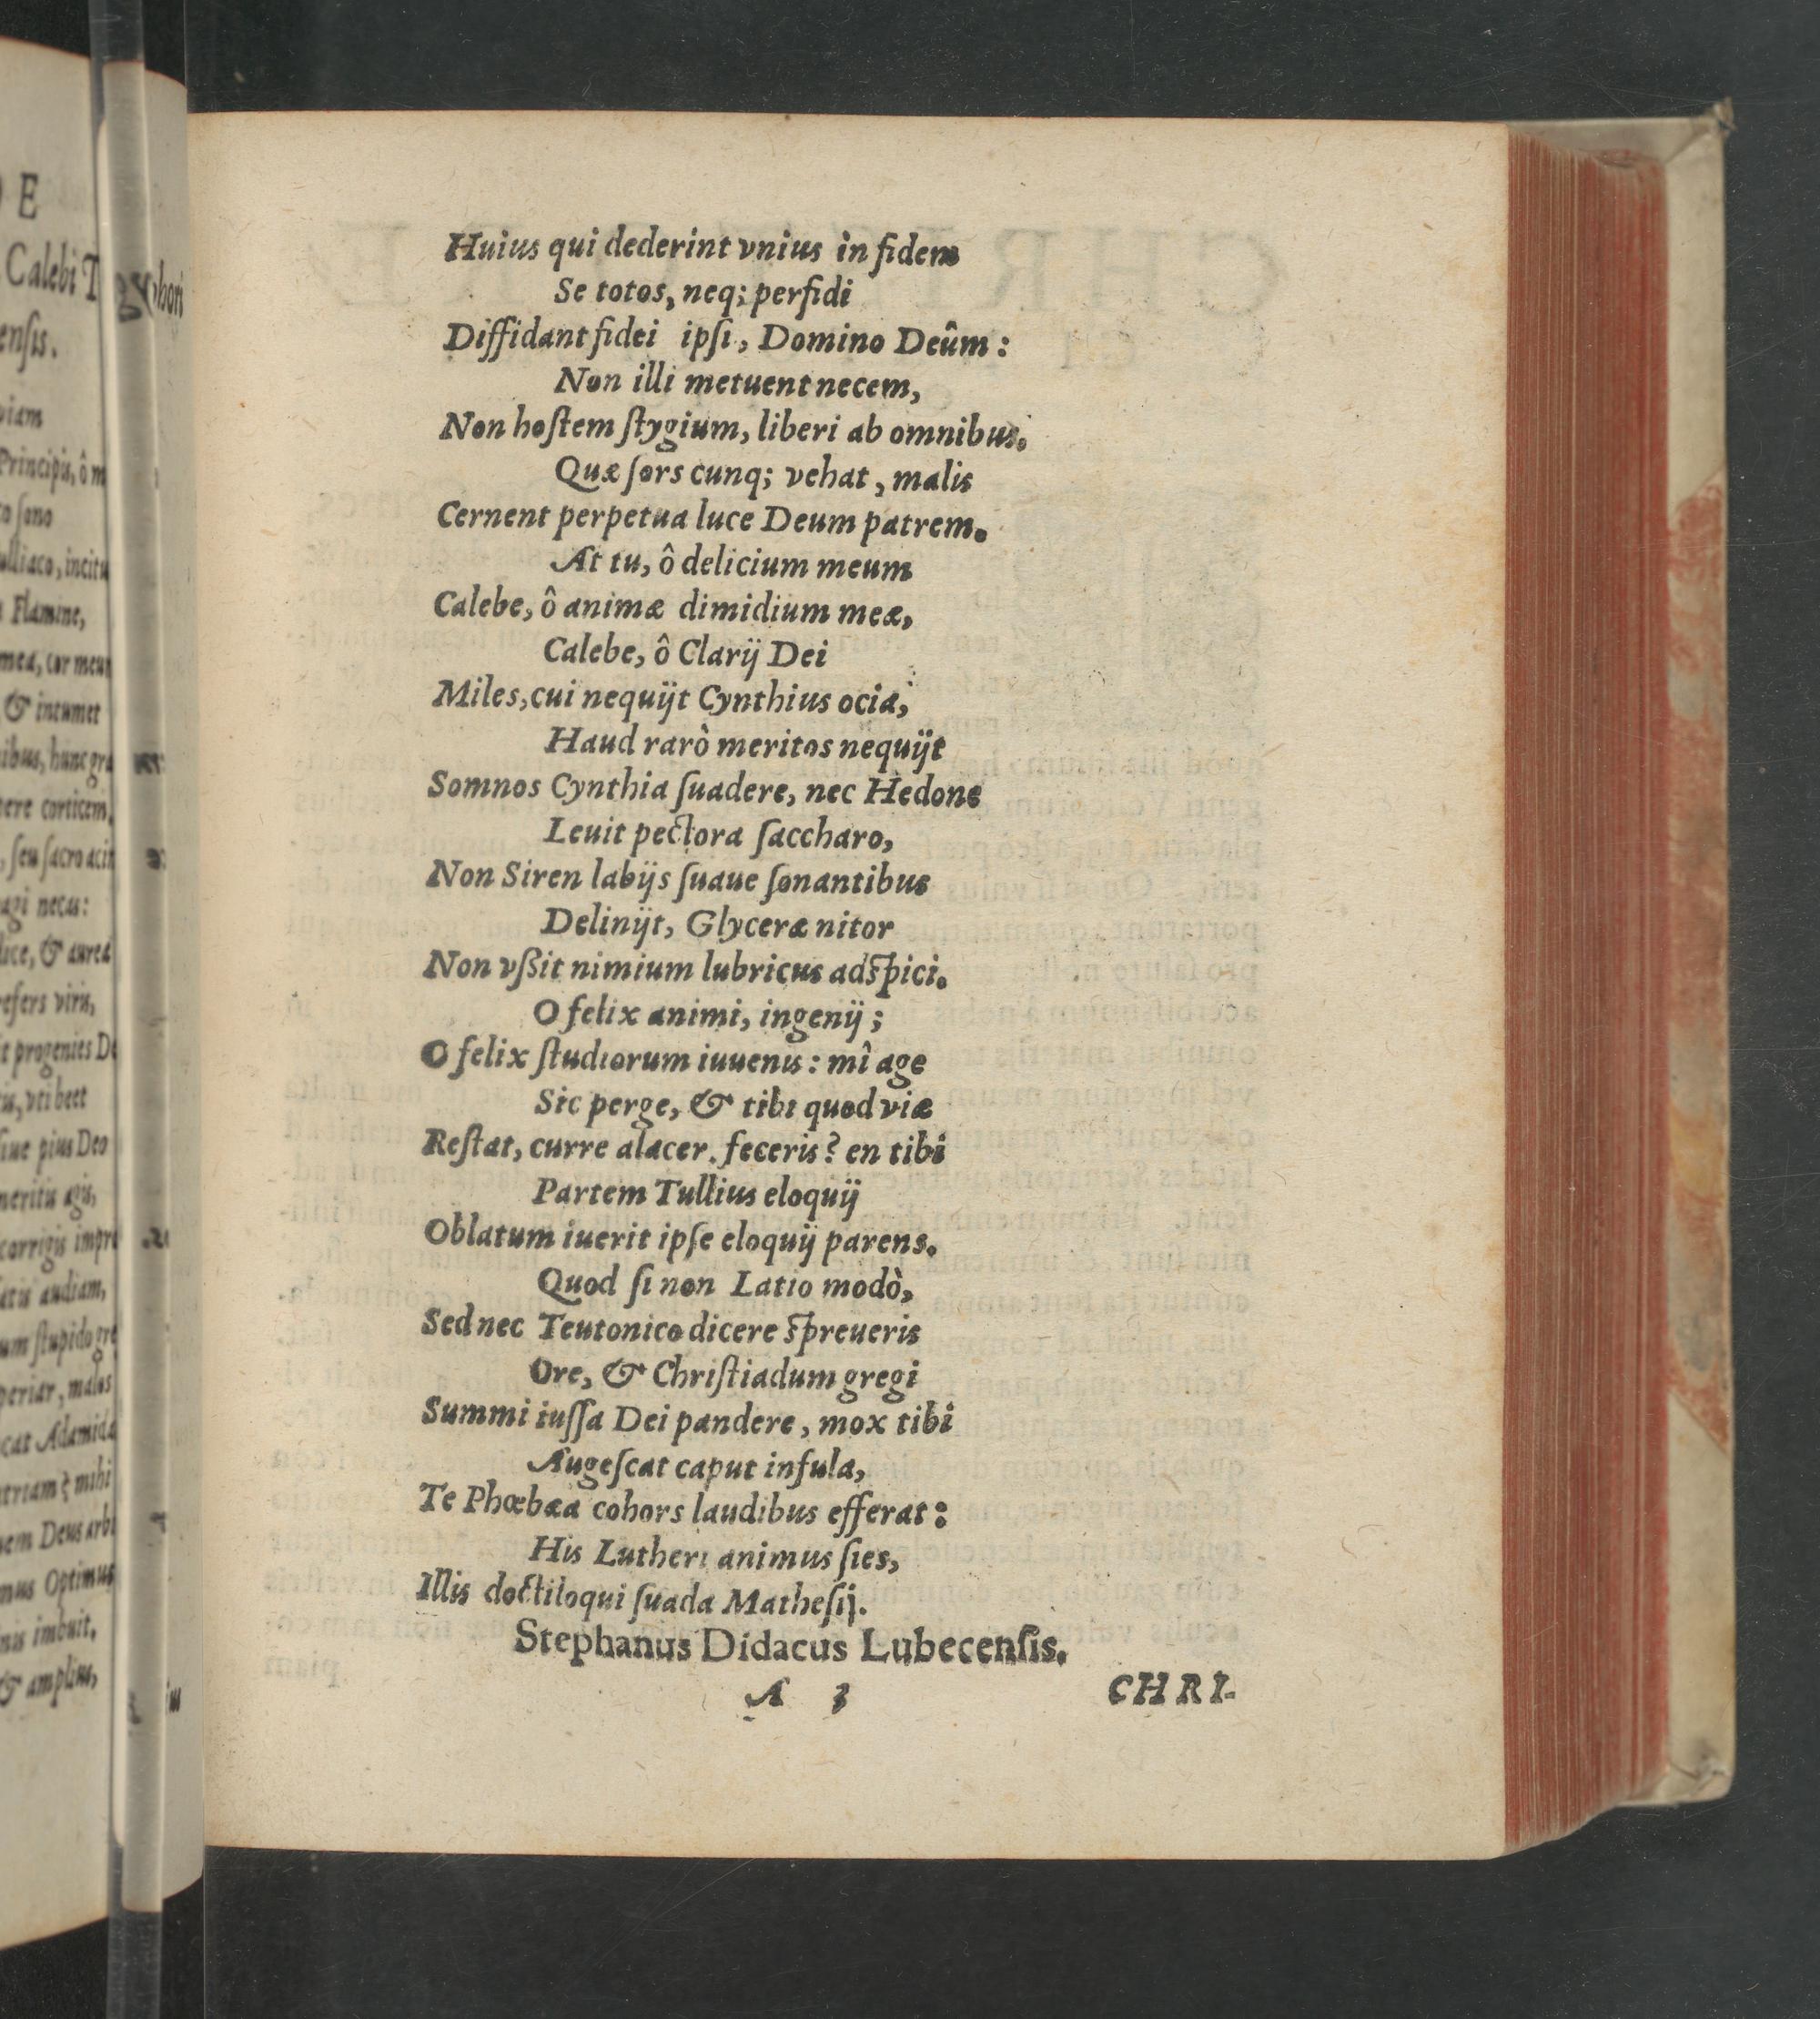 Huius qui dederint vnius in fidem
Se totos, neq; perfidi
Diffidant fidei ipſi, Domino Deûm:
Non illi metuent necem,
Non hoſtem ſtygium, liberi ab omnibus.
Quæ ſors cunq; vehat, malis
Cernent perpetua luce Deum patrem.
At tu, ô delicium meum
Calebe, ô animæ dimidium meæ,
Calebe, ô Clarij Dei
Miles, cui nequijt Cynthius ocia,
Haud rarò meritos nequijt
Somnos Cynthia ſuadere, nec Hedone
Leuit pectora ſaccharo,
Non Siren labijs ſuaue ſonantibus
Delinijt, Glyceræ nitor
Non vßit nimium lubricus adſpici.
O felix animi, ingenij;
O felix ſtudiorum iuuenis: mî age
Sic perge, & tibi quod viæ
Reſtat, curre alacer. feceris? en tibi
Partem Tullius eloquij
Oblatum iuerit ipſe eloquij parens.
Quod ſi non Latio modò,
Sed nec Teutonico dicere ſpreueris
Ore, & Chriſtiadum gregi
Summi iuſſa Dei pandere, mox tibi
Augeſcat caput infula,
Te Phœbæa cohors laudibus efferat:
His Lutheri animus ſies,
Illis doctiloqui ſuada Matheſij.
Stephanus Didacus Lubecenſis.
A 3
CHRI-
E
Calebi T
enſis.
Principis, ô m
ſono
Flamine,
& intumet
corticem,
necis:
& aurea
viris,
progenies D
pius Deo
corrigis
audiam,
ſtupido gre
malos
Adamid
mihi
Deus arbi
Optimus
imbuit,
& amplius,